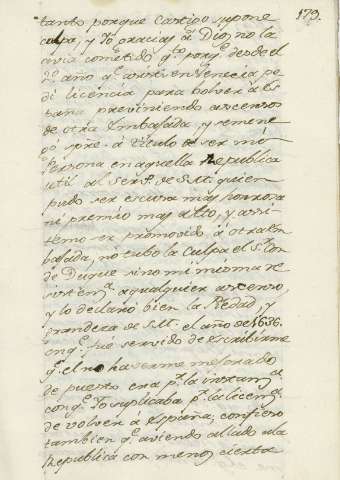 179.
tanto porque Castigo supone
culpa, y Yo gracias a Dios, no la
avia cometido q.to porq.e desde el
2.o año q.e asisti en Venecia pe
di licencia para bolver a Es
paña previniendo ascensos
de otra Embaxada, y se me ne
gó spre. à titulo de ser mi
Persona en aquella Republica
util al Serv.o de S.M. quien
pudo ser escusa mas honrosa
ni premio mas alto, y assi
temo ser promovido à otra Em
baxada, no tubo la Culpa el S.r Con
de Duque sino mi misma re
sistem.a a qualquier ascenso,
y lo declaró bien la Piedad, y
grandeza de S.M. el año de 1636.
en q.e fué servido de escribirme
q.e el no haverme mejorado
de puesto era p.r la instan.a
con q.e Yo suplicaba p.r la licen.a
de volver à España; confieso
tambien q.e aviendo allado a la
Republica con menos cierta